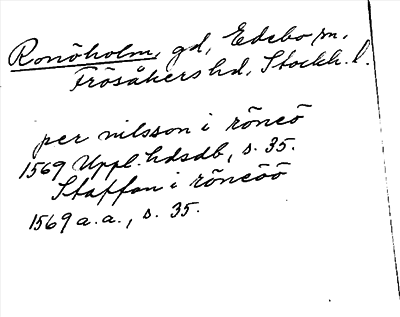 Ronöholm, gd, Edebo sn,
Frösåkers hd, Stockh. l.
per nilsson i röneö
1569 Uppl. hdsdb, s. 35.
Staffan i röneöö
1569 a. a., s. 35.